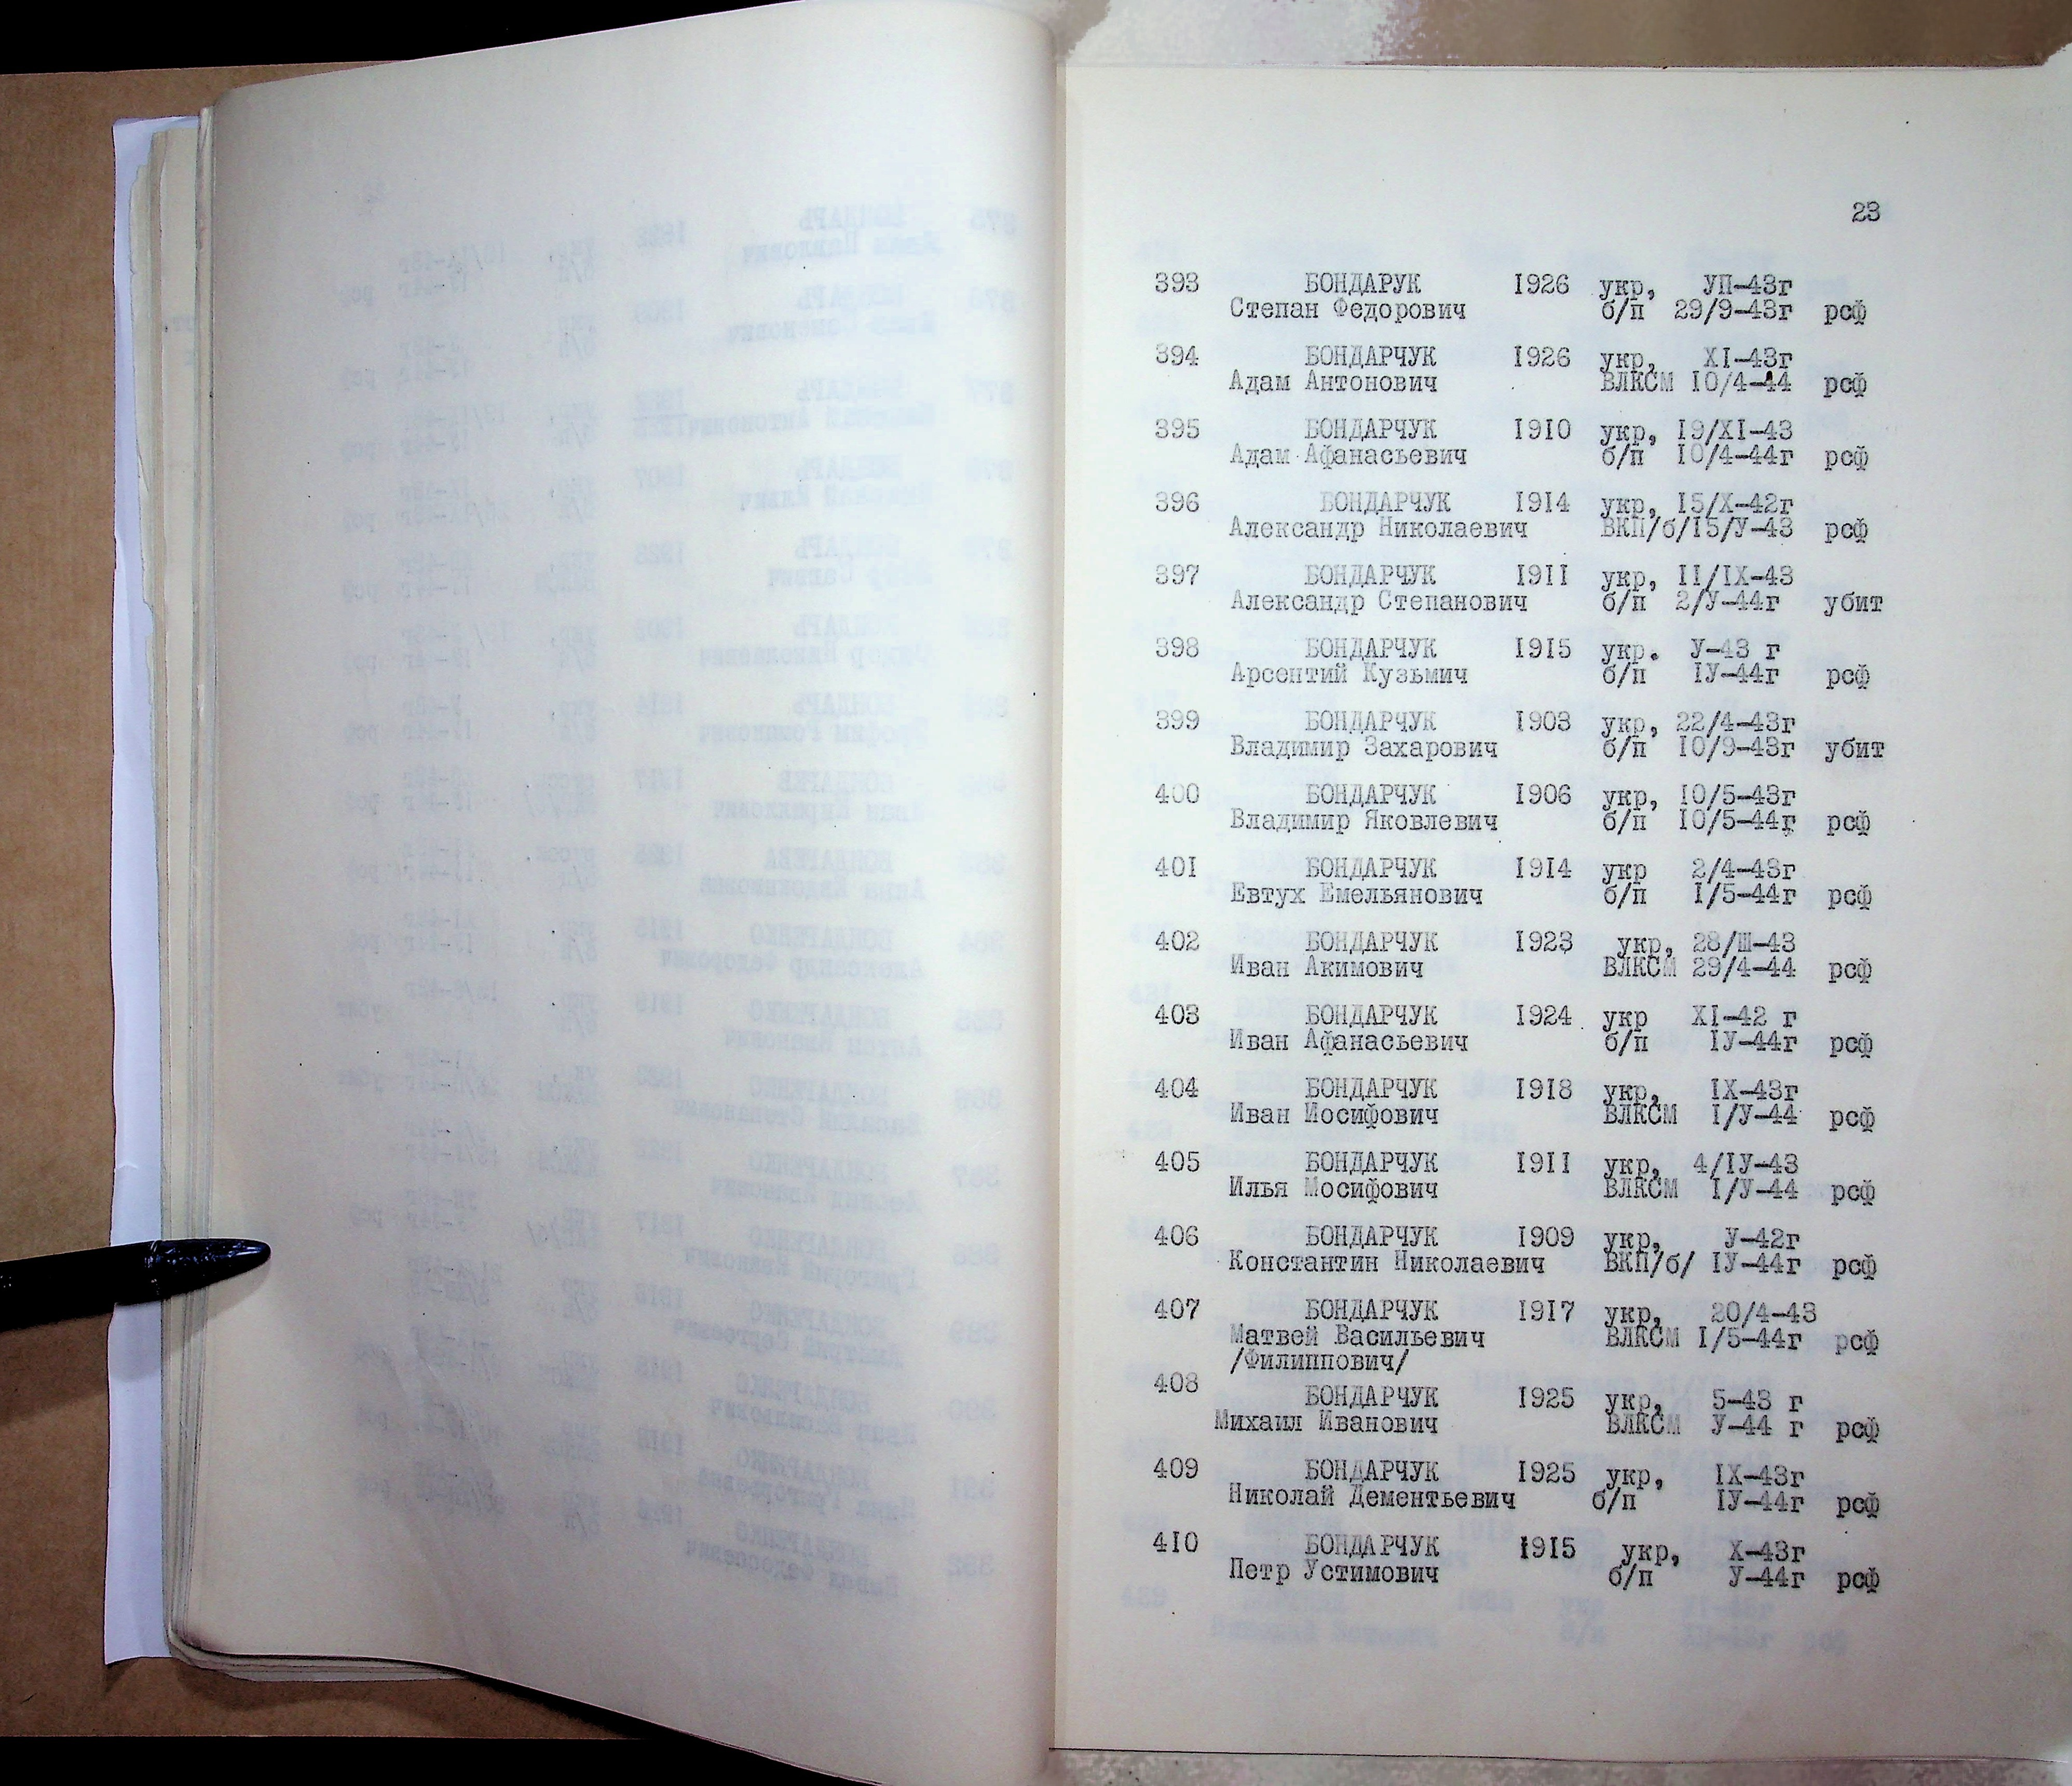 23
393 БОНДАРУК 1926 укр, УП-43г
Степан Федорович б/п 29/9-43г рсф
394 БОНДАРЧУК 1926 укр, XI-43г
Адам Антонович ВЛКСМ 10/4-44 рсф
395 БОНДАРЧУК 1910 укр, 19/XI-43
Адам Афанасьевич б/п 10/4-44г рсф
396 БОНДАРЧУК 1914 укр, 15/X-42г
Александр Николаевич ВКП/б/15/У-43 рсф
397 БОНДАРЧУК 1911 укр, 11/IX-43
Александр Степанович б/п 2/У-44г убит
398 БОНДАРЧУК 1915 укр. У-43 г
Арсентий Кузьмич б/п IУ-44г рсф
399 БОНДАРЧУК 1903 укр, 22/4-43г
Владимир Захарович б/п 10/9-43г убит
400 БОНДАРЧУК 1906 укр, 10/5-43г
Владимир Яковлевич б/п 10/5-44г рсф
401 БОНДАРЧУК 1914 укр 2/4-43г
Евтух Емельянович б/п 1/5-44г рсф
402 БОНДАРЧУК 1923 укр, 28/Ш-43
Иван Акимович ВЛКСМ 29/4-44 рсф
403 БОНДАРЧУК 1924 укр XI-42 г
Иван Афанасьевич б/п IУ-44г рсф
404 БОНДАРЧУК 1918 укр, IX-43г
Иван Иосифович ВЛКСМ 1/У-44 рсф
405 БОНДАРЧУК 1911 укр, 4/IУ-43
Илья Иосифович ВЛКСМ 1/У-44 рсф
406 БОНДАРЧУК 1909 укр, У-42г
Константин Николаевич ВКП/б/ IУ-44г рсф
407 БОНДАРЧУК 1917 укр, 20/4-43
Матвей Васильевич ВЛКСМ 1/5-44г рсф
/Филиппович/
408 БОНДАРЧУК 1925 укр, 5-43 г
Михаил Иванович ВЛКСМ У-44 г рсф
409 БОНДАРЧУК 1925 укр, IX-43г
Николай Дементьевич б/п IУ-44г рсф
410 БОНДАРЧУК 1915 укр, X-43г
Петр Устимович б/п У-44г рсф